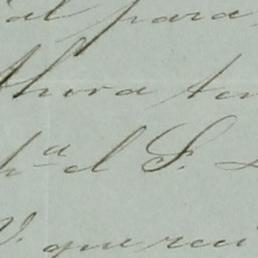 al para
Ahora ten
h.ª el S.
V. que reci